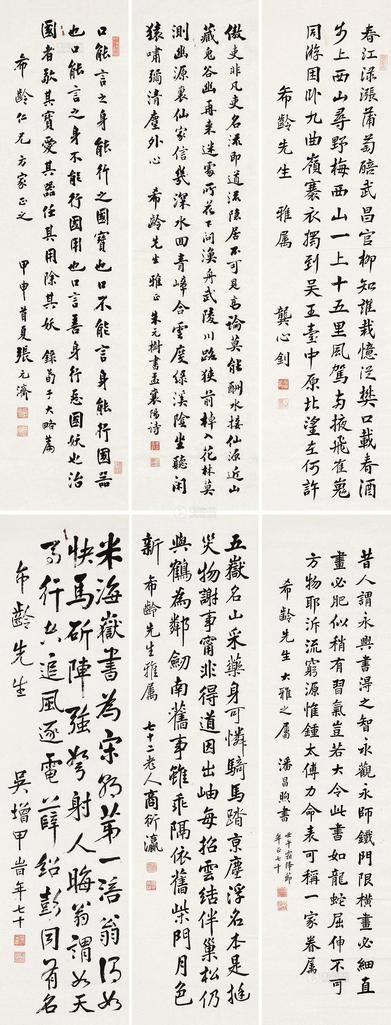 春江淥漲蒲萄醅武昌官柳知誰栽憶泛樊口載春酒
步上西山尋野梅西山一上十五里風駕兩掖飛崔嵬
同游困臥九曲嶺褰衣獨到吳王臺中原北望在何許
希齡先生 雅屬 龔心釗
傲吏非凡吏名流即道流隱居不可見高論莫能酬水接仙源近山
藏鬼谷幽再來迷處所花下問漁舟武陵川路狹前棹入花林莫
測幽源裏仙家信幾深水回青嶂合雲度綠溪陰坐聽閑
猿嘯彌清塵外心 希齡先生雅正 朱元樹書孟襄陽詩
口能言之身能行之國寶也口不能言身能行國器
也口能言之身不能行國用也口言善身行惡國妖也治
國者敬其寶愛其器任其用除其妖 錄荀子大略篇
希齡仁兄方家正之 甲申首夏張元濟
昔人謂永興書得之智永觀永師鐵門限橫畫必細直
畫必肥似稍有習氣豈若大令此書如龍蛇屈伸不可
方物耶泝流窮源惟鍾太傅力命表可稱一家眷屬
希齡先生大雅之屬 潘昌煦書 壬午霜降節
年正七十
五嶽名山采藥身可憐騎馬踏京塵浮名本是挻
災物謝事甯非得道因出岫每招雲結伴巢松仍
與鶴為鄰劒南舊事雖乖隔依舊柴門月色
新 希齡先生雅屬 七十二老人商衍瀛
米海嶽書為宋朝第一涪翁謂如
快馬斫陣強弩射人晦翁謂如天
馬行空追風逐電薛紹彭同有名
希齡先生 吳增甲時年七十